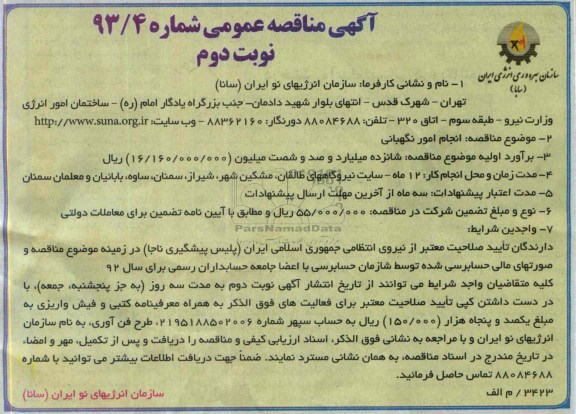 آگهی مناقصه عمومی شماره ۹۳/۴
نوبت دوم
سازمان بهره‌وری انرژی ایران
(سابا)
۱- نام و نشانی کارفرما: سازمان انرژیهای نو ایران (سانا)
تهران - شهرک قدس - انتهای بلوار شهید دادمان- جنب بزرگراه یادگار امام (ره) - ساختمان امور انرژی
وزارت نیرو - طبقه سوم - اتاق ۳۲۰ - تلفن: ۸۸۰۸۴۶۸۸ دورنگار: ۸۸۳۶۲۱۶۰ - وب سایت: http://www.suna.org.ir
۲- موضوع مناقصه: انجام امور نگهبانی
۳- برآورد اولیه موضوع مناقصه: شانزده میلیارد و صد و شصت میلیون (۱۶/۱۶۰/۰۰۰/۰۰۰) ریال
۴-مدت زمان و محل انجام کار: ۱۲ ماه - سایت نیروگاههای طالقان، مشکین شهر، شیراز، سمنان، ساوه، بابائیان و معلمان سمنان
۵-مدت اعتبار پیشنهادات: سه ماه از آخرین مهلت ارسال پیشنهادات
۶- نوع و مبلغ تضمین شرکت در مناقصه: ۵۵/۰۰۰/۰۰۰ ریال و مطابق با آیین نامه تضمین برای معاملات دولتی
ParsNamadData
۷- واجدین شرایط:
دارندگان تأیید صلاحیت معتبر از نیروی انتظامی جمهوری اسلامی ایران (پلیس پیشگیری ناجا) در زمینه موضوع مناقصه و
صورتهای مالی حسابرسی شده توسط شازمان حسابرسی با اعضا جامعه حسابداران رسمی برای سال ۹۲
کلیه متقاضیان واجد شرایط می توانند از تاریخ انتشار آگهی نوبت دوم به مدت سه روز (به جز پنجشنبه، جمعه)، با
در دست داشتن کپی تأیید صلاحیت معتبر برای فعالیت های فوق الذکر به همراه معرفینامه کتبی و فیش واریزی به
مبلغ یکصد و پنجاه هزار (۱۵۰/۰۰۰) ریال به حساب سپهر شماره ۲۱۹۵۱۸۸۵۰۲۰۰۶، طرح فن آوری، به نام سازمان
انرژیهای نو ایران و با مراجعه به نشانی فوق الذکر، اسناد ارزیابی کیفی و مناقصه را دریافت و پس از تکمیل، مهر و امضاء،
در تاریخ مندرج در اسناد مناقصه، به همان نشانی مسترد نمایند. ضمناً جهت دریافت اطلاعات بیشتر می توانید با شماره
۸۸۰۸۴۶۸۸ تماس حاصل فرمائید.
۳۴۲۳ / م الف
سازمان انرژیهای نو ایران (سانا)